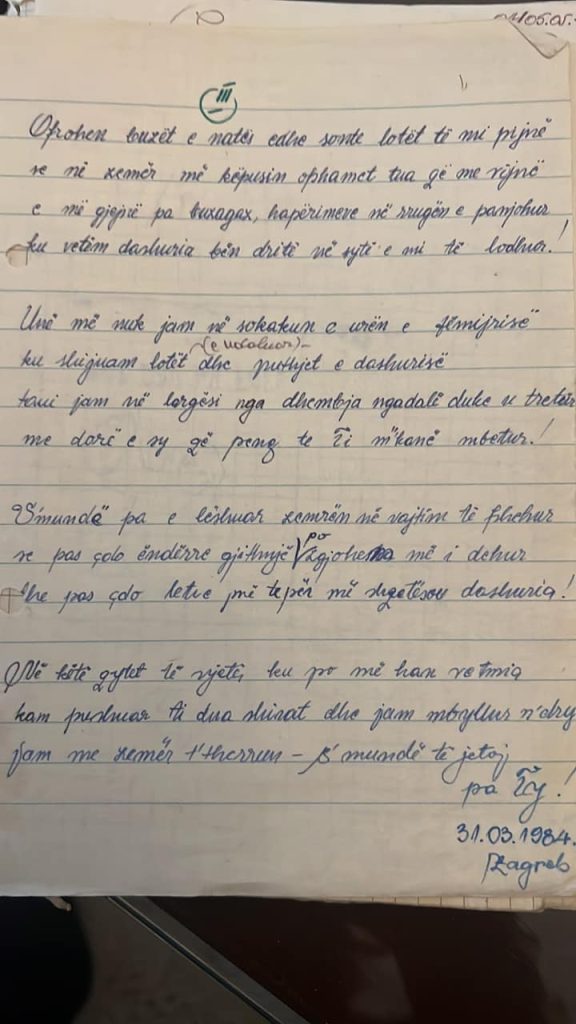 05.05.
III
Afrohen buzët e natës edhe sonte lotët të mi pijnë
se në zemër më këpusin ophamet tua që me vijnë
e më gjejnë pa buzagaz, hapërimeve në rrugën e panjohur
ku vetëm dashuria bën dritë në sytë e mi të lodhur.!
Unë më nuk jam në sokakun e urën e fëmijrisë
ku shijuam lotët dhe puthjet e dashurisë
tani jam në largësi nga dhembja ngadalë duke u tretur
me darë e sy që peng te Ti m'kanë mbetur.!
S'mundë pa e lëshuar zemrën në vajtim të fshehur
se pas çdo ëndërre gjithnjë po zgjohem më i dehur
dhe pas çdo letre më tepër më shqetëson dashuria!
Në këtë qytet të vjetër ku po më han vetmia
kam pushuar ti dua shirat dhe jam mbyllur n'dry
jam me zemër t'therrun - s'mundë të jetoj
pa Ty!
31.03.1984.
Zagreb